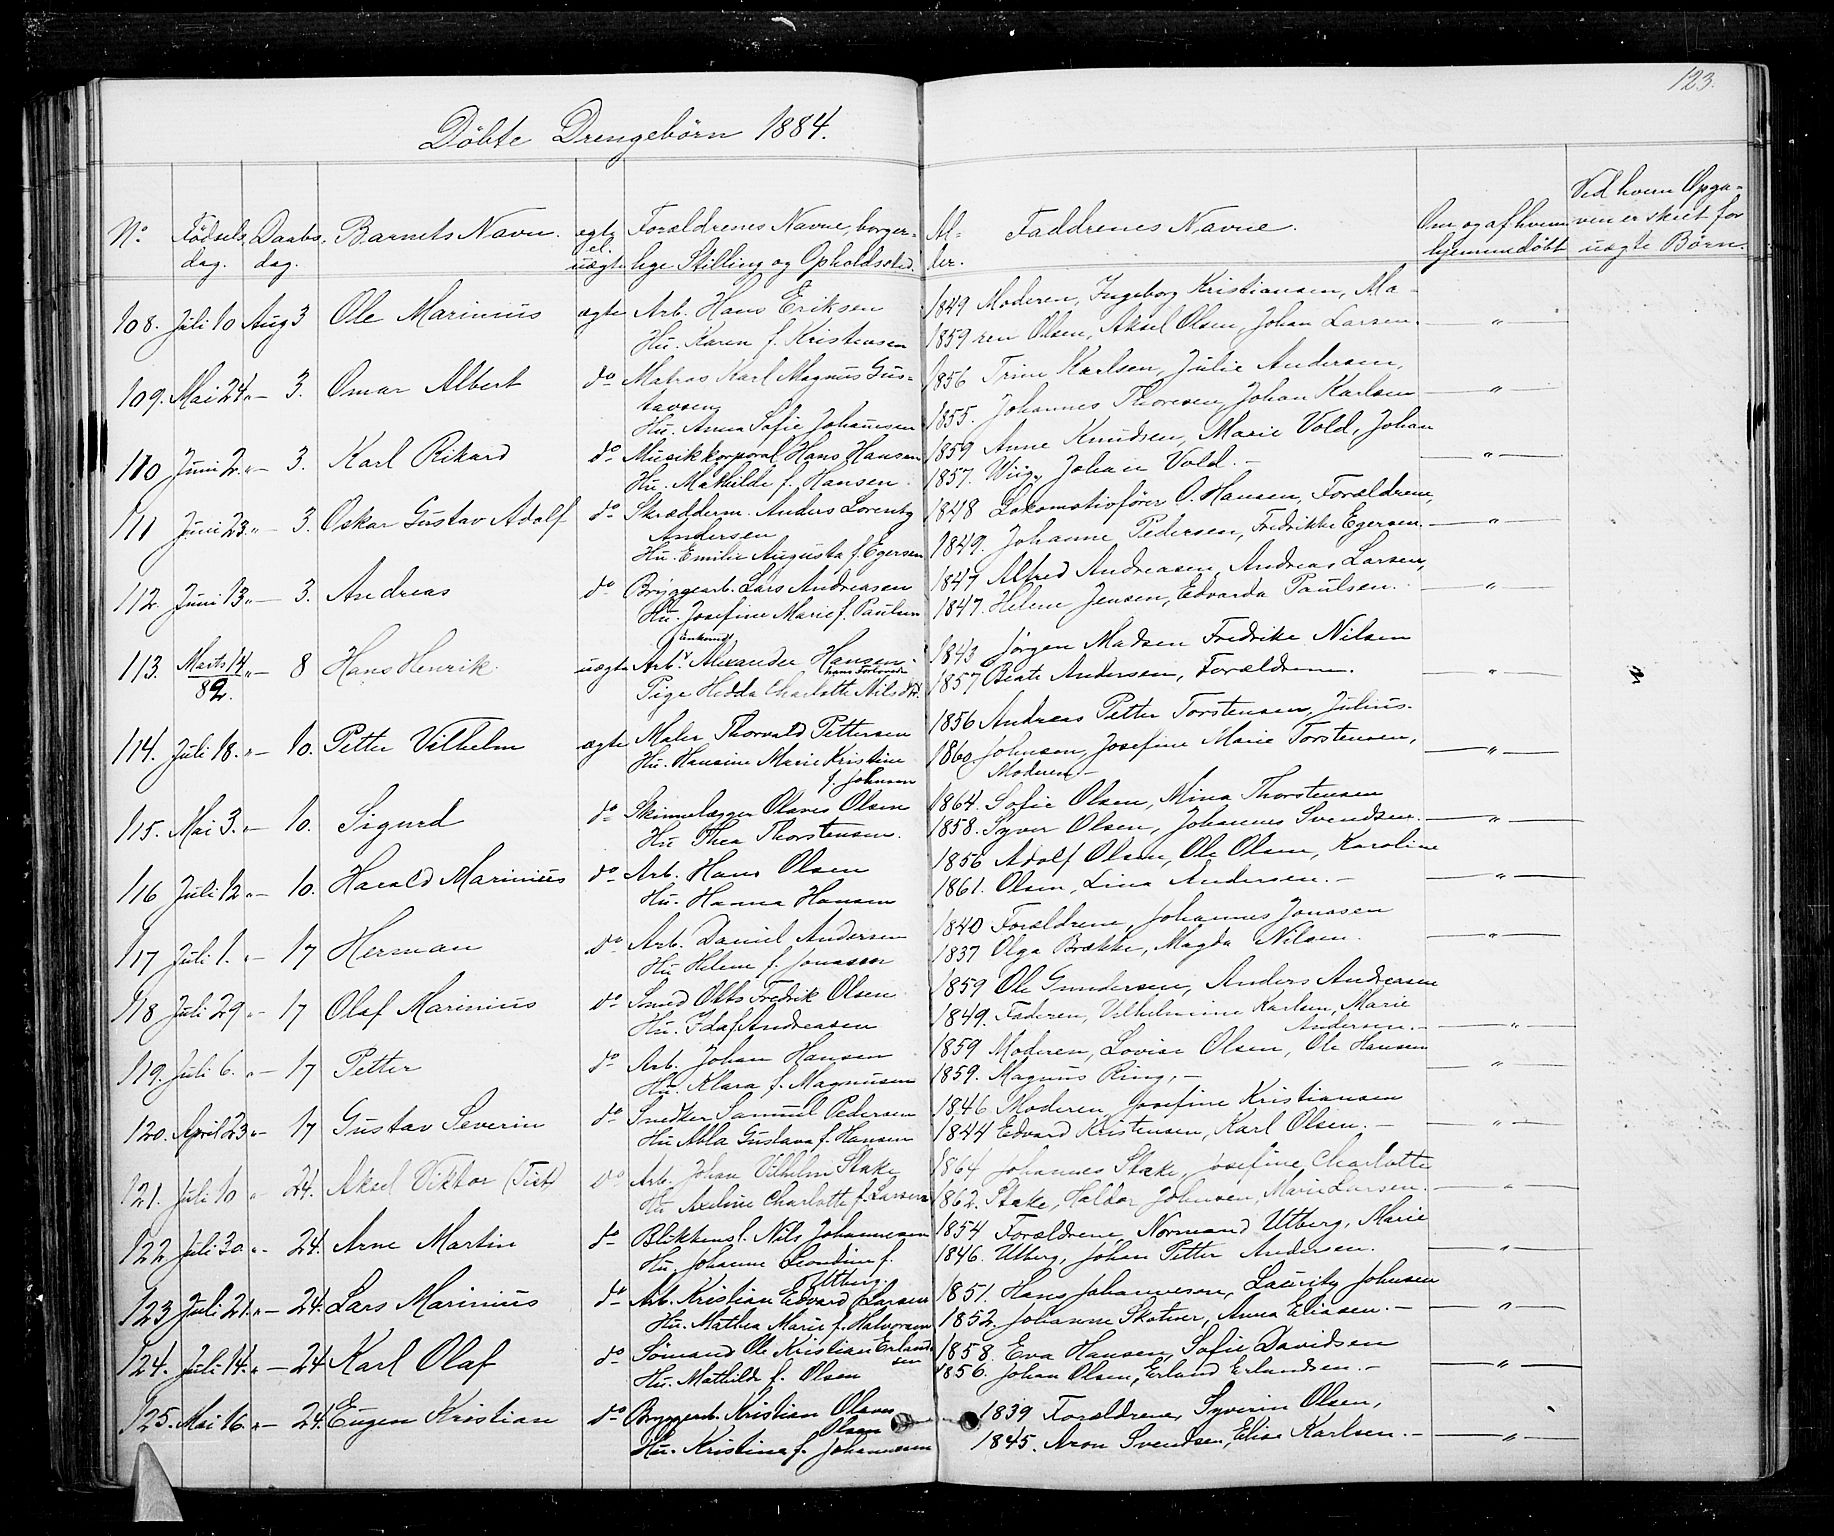 123.
Döbte Drengebörn 1884.
No Födsels dag. Daabs dag. Barnets Navn. ægte el. uægte Forældrenes Navne, borgerlige Stilling og Opholdssted. Alder. Faddrenes Navne. Om og af hvem hjemmedöbt Ved hvem Opgaven er skeet for uægte Börn.
108. Juli 10 Aug 3 Ole Marinius ægte Arb. Hans Eriksen 1849 Moderen, Ingeborg Kristiansen, Ma-
Hu. Karen f. Kristensen 1859 ren Olsen, Aksel Olsen, Johan Larsen. — " —
109. Mai 24 " — 3. Omar Albert do Matros Karl Magnus Gus- 1856 Trine Karlsen, Julie Andersen,
tavsen
Hu. Anna Sofie Johansen 1855. Johannes Thoresen, Johan Karlsen — " —
110 Juni 2 " — 3. Karl Rikard do Musikkorporal Hans Hansen 1859 Anne Knudsen, Marie Vold, Johan
Hu. Mathilde f. Hansen. 1857. Wiig, Johan Vold. — — " —
111 Juni 23 " — 3. Oskar Gustav Adolf do Skrædderm. Anders Lorentz 1848 Lokomotivförer O. Hansen, Forældrene,
Andersen
Hu. Emilie Augusta f. Egersen 1849. Johanne Pedersen, Fredrikke Egersen. — " —
112. Juni 13 " — 3. Andreas do Bryggearb. Lars Andreasen 1847 Alfred Andreasen, Andreas Larsen,
Hu. Josefine Marie f. Paulsen 1847. Helene Jensen, Edvarda Paulsen. — " —
Enkemd
113. Marts 14 82. " — 8 Hans Henrik. uægte Arb. Alexander Hansen. 1843 Jörgen Madsen Fredrike Nilsen
hans Forlovede
Pige Hedda Charlotte Nilsdtr. 1857 Beate Andersen, Forældrene. — " —
114. Juli 18. " — 10. Petter Vilhelm ægte Maler Thorvald Pettersen 1856 Andreas Petter Torstensen, Julius
Hu. Hansine Marie Kristine 1860 Johnsen, Josefine Marie Torstensen, — " —
f. Johnsen Moderen —
115. Mai 3. " — 10. Sigurd do Skinnelægger Olaves Olsen 1864. Sofie Olsen, Mina Thorstensen
Hu Thea Thorstensen. 1858. Syver Olsen, Johannes Svendsen. — " —
116 Juli 12 " — 10. Harald Marinius do Arb. Hans Olsen 1856 Adolf Olsen, Ole Olsen, Karoline
Hu. Hanna Hansen 1861. Olsen, Lina Andersen. — — " —
117 Juli 1. " — 17 Herman do Arb. Daniel Andersen 1840 Forældrene, Johannes Jonassen
Hu Helene f. Jonassen 1837 Olga Brække, Magda Nilsen. — " —
118 Juli 29 " — 17 Olaf Marinius do Smed Otto Fredrik Olsen 1859 Ole Gundersen, Anders Andersen
Hu. Ida f Andreasen 1849. Faderen, Vilhelmine Karlsen, Marie
Andersen. — — " —
119. Juli 6. " — 17 Petter do Arb. Johan Hansen 1859 Moderen, Lovise Olsen, Ole Hansen
Hu. Klara f. Magnusen 1859. Magnus Ring, — — " —
120. April 23 " — 17 Gustav Severin do Snedker Samuel Pedersen 1846 Moderen, Josefine Kristiansen
Hu Abla Gustava f. Hansen 1844 Edvard Kristensen, Karl Olsen. — — " —
121. Juli 10 " 24. Aksel Viktor (Tist) do Arb. Johan Vilhelm Stake 1864 Johannes Stake, Josefine Charlotte
Hu Axeline Charlotte f. Larsen 1862. Stake, Haldor Johnsen, Marie Larsen. — " —
122 Juli 30 " — 24. Arne Martin do Blikkensl. Nils Johannesen 1854 Forældrene, Normand Utberg, Marie
Hu. Johanne Leondine f. 1846. Utberg, Johan Petter Andersen. — " —
Utberg.
123 Juli 21. " — 24. Lars Marinius do Arb. Kristian Edvard Larsen 1851. Hans Johannesen, Lauritz Johnsen
Hu. Mathea Marie f. Halvorsen 1852. Johanne Skotner, Anna Eliasen. — — " —
124. Juli 14. " — 24 Karl Olaf do Sömand Ole Kristian Erland- 1858. Eva Hansen, Sofie Davidsen
sen
Hu. Mathilde f. Olsen 1856. Johan Olsen, Erland Erlandsen. — — " —
125. Mai 16. " — 24. Eugen Kristian do Bryggearb. Kristian Olaves 1839 Forældrene, Syverin Olsen,
Olsen
Hu. Kristina f. Johannesen 1845. Aron Svendsen, Elise Karlsen. — — " —